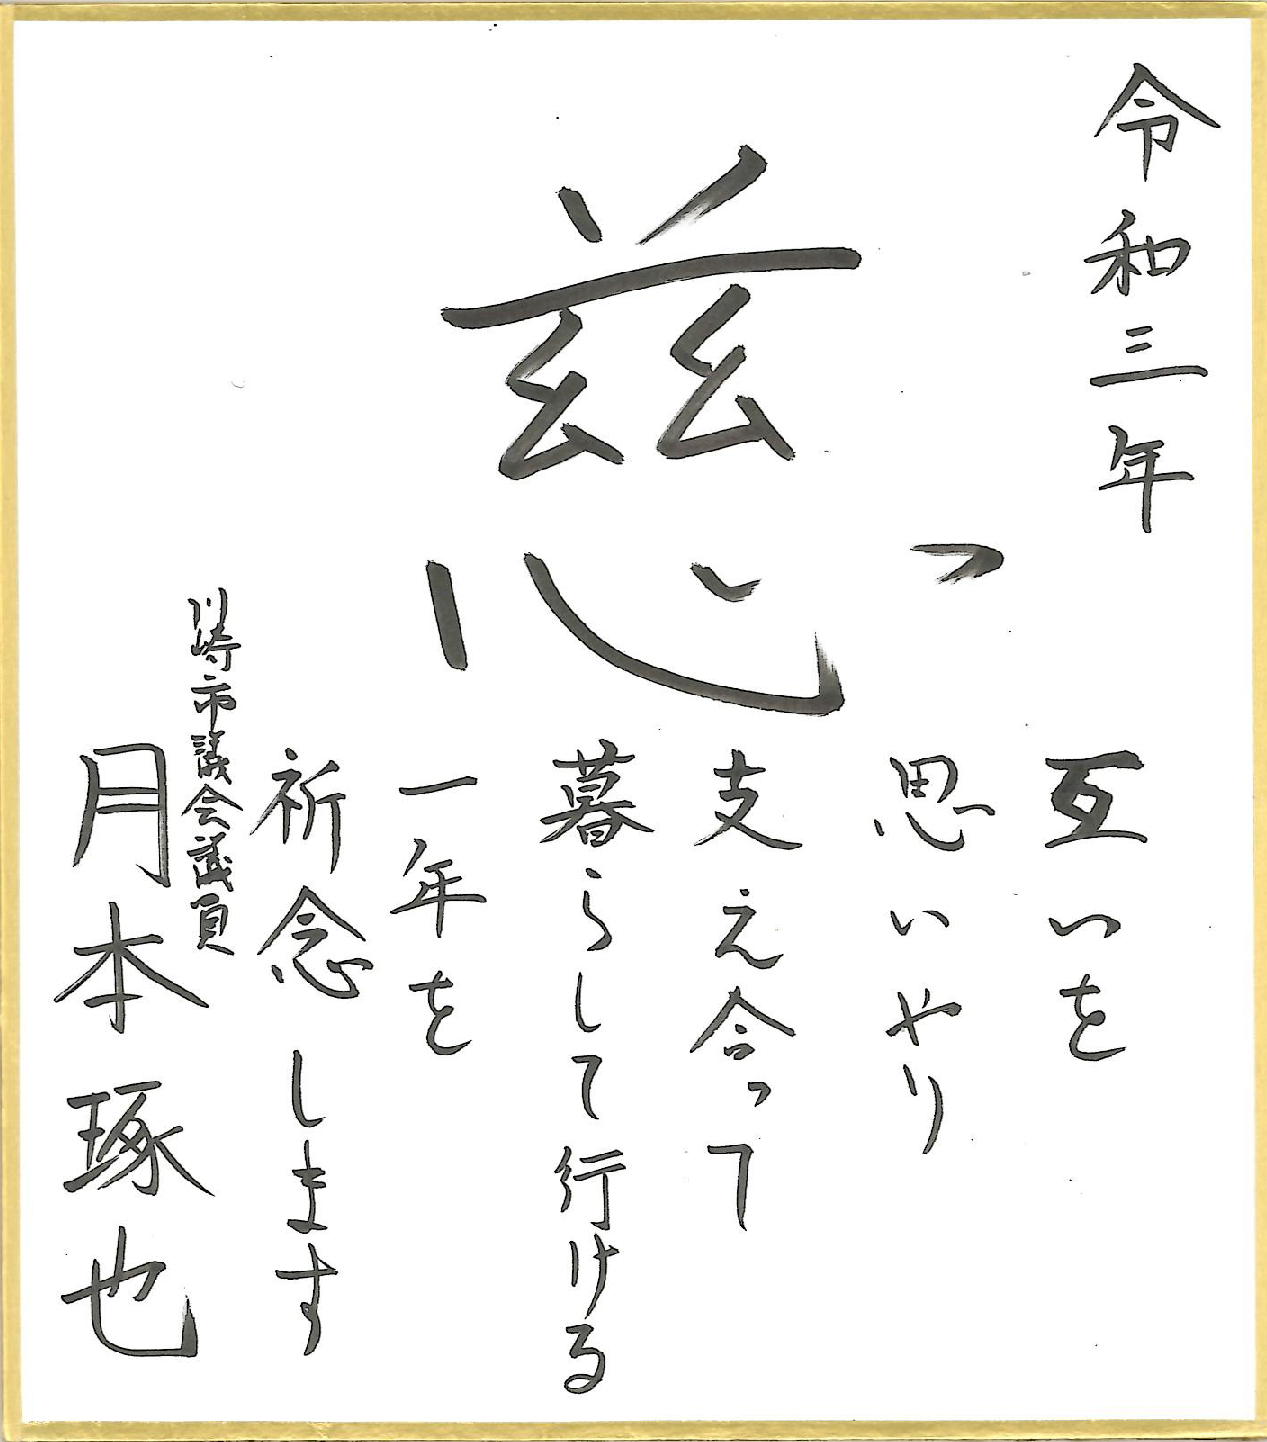 令和三年
慈
互いを
思いやり
支え合って
暮らして行ける
一年を
祈念します
川崎市議会議員
月本琢也